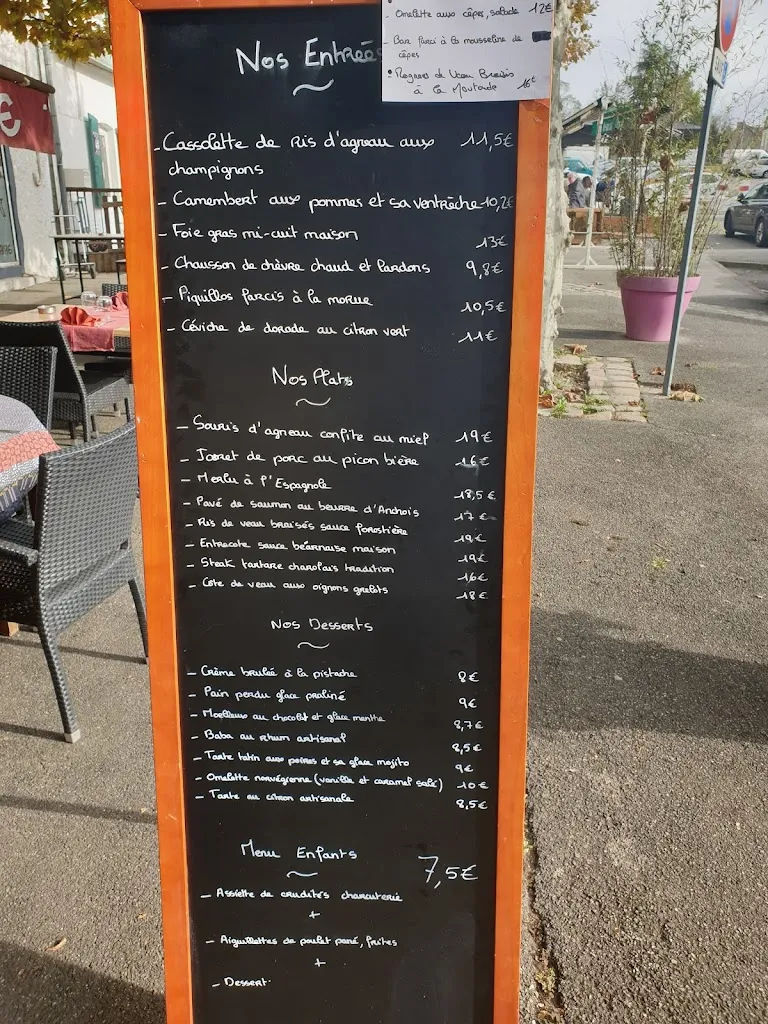 - Omelette aux cêpes, salade 12€
- Bar farci à la mousseline de
cêpes
• Rognons de Veau Braisés
à la Moutarde 16€
€
Nos Entrées
- Cassolette de Ris d'agneau aux 11,5€
champignons
- Camembert aux pommes et sa ventrèche 10,2€
- Foie gras mi-cuit maison 13€
- Chausson de chèvre chaud et lardons 9,8€
- Piquillos farcis à la morue 10,5€
- Céviche de dorade au citron vert 11€
Nos Plats
- Souris d'agneau confite au miel 19€
- Jarret de porc au picon bière 16€
- Merlu à l'Espagnole 18,5€
- Pavé de saumon au beurre d'Anchois 17€
- Ris de veau braisés sauce forestière 19€
- Entrecote sauce béarnaise maison 19€
- Steak tartare charolais tradition 16€
- Côte de veau aux oignons grelots 18€
Nos Desserts
- Crème brulée à la pistache 8€
- Pain perdu glace praliné 9€
- Moelleux au chocolat et glace menthe 8,7€
- Baba au Rhum artisanal 8,5€
- Tarte tatin aux poires et sa glace mojito 9€
- Omelette norvégienne (vanille et caramel salé) 10€
- Tarte au citron artisanale 8,5€
Menu Enfants 7,5€
- Assiette de crudités charcuterie
+
- Aiguillettes de poulet pané, frites
+
- Dessert